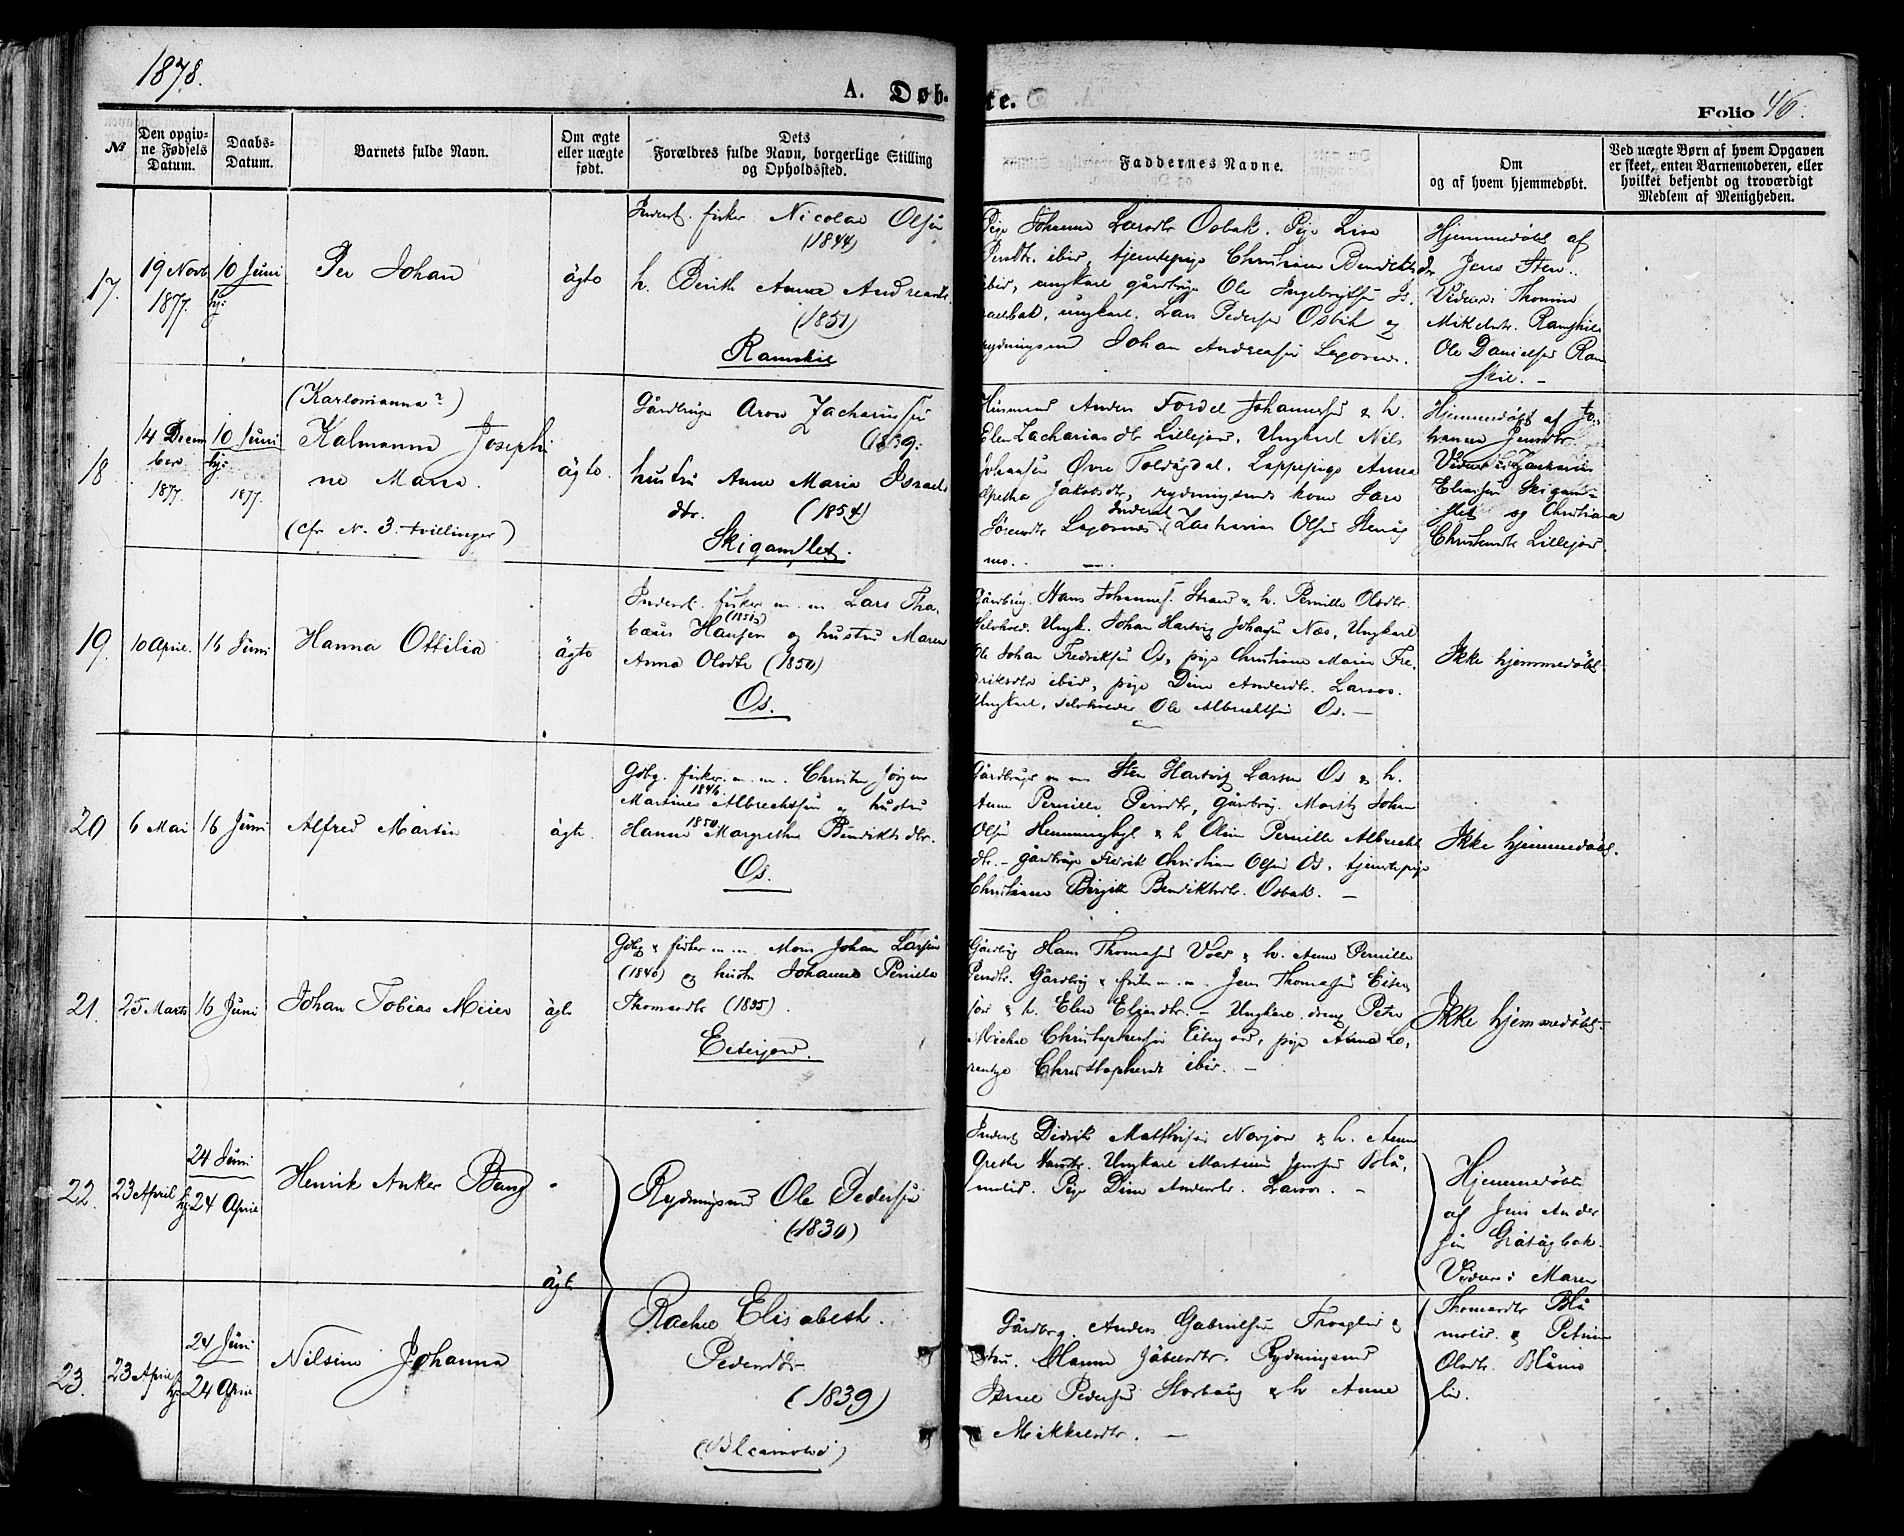 1878.
A. Døb-
te.
Folio 46.
№
Den opgiv-
ne Fødsels
Datum.
Daabs-
Datum.
Barnets fulde Navn.
Om ægte
eller uægte
født.
Dets
Forældres fulde Navn, borgerlige Stilling
og Opholdssted.
Faddernes Navne.
Om
og af hvem hjemmedøbt.
Ved uægte Børn af hvem Opgaven
er skeet, enten Barnemoderen, eller
hvilket bekjendt og troværdigt
Medlem af Menigheden.
17.
19 Novb
1877.
10 Juni
hj:
Per Johan
ägte
Inderst. fisker Nicolai Olsen
(1844)
h. Berith Anna Andreasdtr.
(1851)
Ramskil
Pige Johanna Larsdtr Osbak. Pige Lisa
Persdtr. ibid, tjenstepige Christiane Bendiktsdr
ibid, ungkarl gårdbrugr Ole Ingebrigtsen Is
raelsbak, ungkarl. Lars Pedersen Osbak og
rydningsmd Johan Andreasen
Hjemmedøbt af
Jens Sten..
Vidner: Thomine
Mikkelsdtr. Ramskil
Ole Danielsen Ram
skil. -
18
14 Decem
ber
1877.
10 Juni
hj:
1877.
(Karlomanna?)
Kalmanna Josephi
ne Maria.
(cfr N. 3. tvillinger)
ägte
Gårdbruger Aron Zachariassen
(1839:
hustru Anne Maria Israels
dtr. (1854)
Skigamslet.
Husmand Anders Fordel Johannesen & h.
Elen Zacharias dtr Lillejord. Ungkarl Nils
Johansen Øvre Toldågdal. Lappepige Anna
Jakobsdtr, rydningsmds kone Sara
Inderst
Zacharias Olsen
mo.
Hjemmedøbt af Jo
hanna Jensdtr
Vidner: Zacharias
Eliassen Skigam-
slet og Christiana
Christensdtr Lillejord.
19.
10 April.
16 Juni
Hanna Ottilia
ägte
Inderst. fisker m. m. Lars Tha-
bæus Hansen og hustru Maren
Anna Olsdtr (1850)
Os.
Gårdbrug. Hans Johannes. Strand & h. Pernille Olsdtr.
Selvhold. Ungk. Johan Hartvig Johansen Næs, Ungkarl
Ole Johan Fredriksen Os, pige Christiane Marie Fre
driksdtr ibid, pige Dina Andersdtr. Larsos.
Ungkarl, selvholder Ole Albrechtsen Os. -
Ikke hjemmedøbt
20
6 Mai
16 Juni
Alfred Martin
ägte.
Gdbg. fisker m. m. Christen Jørgen
1846.
Martines Albrechtsen og hustru
1850.
Hanna Margrethe Bendiktsdtr.
Os.
Gårdbruger m m Sten Hartvig Larsen Os & h.
Anne Pernille Persdtr, gårdbrug. Morits Johan
Olsen Hemmingbyt & h Olina Pernille Albrechts
dtr. - gårdbruger Fredrik Christian Olsen Os, tjenstepige
Christiane Birgit Bendiktsdtr. Osbak. -
Ikke hjemmedøbt.
21.
25 Marts
16 Juni
Johan Tobias Meier
ägte
Gdbg & fisker m. m. Mons Johan Larsen
(1840) og hustru Johanna Pernille
Thomasdtr (1835).
Eiterjord.
Gårdbrg Hans Thomassen Vold & h. Anne Pernille
Persdtr. Gårdbrg & fisker m. m. Jens Thomassen Eiter
jord & h. Elen Eliasdtr. - Ungkarl. dreng Peter
Michel Christophersen Eiterjord, pige Anna Lo,
rentze Christophersdtr ibid. -
Ikke hjemmedøbt-
22.
23 April
24 Juni
hj: 24 April
Henrik Anker Bang
Rydningsmd Ole Pedersen
(1830)
Inderst Didrik Mathisen Norjord & h. Anne
Grethe Hansdtr. Ungkarl Martinus Jensen Blå,
molid. Pige Dina Andersdtr. Larsos. -
Hjemmedøbt
af Jens Ander
sen Gråtågbak.
Vidner: Maren
ägte
23.
23 April
24 Juni
hj: 24 April
Nilsine Johanna
Rachel Elisabeth
Pedersdtr
(1839)
(Blaamolid)
Gårdbrg. Anders Gabrielsen Troaglid &
hstru. Hanna Jöbelsdtr. Rydningsmd
Israel Pedersen Storhaug & h Anne
Mikkelsdtr. -
Thomasdtr Blå
molid. & Petrine
Olsdtr. Blåmo
lid.